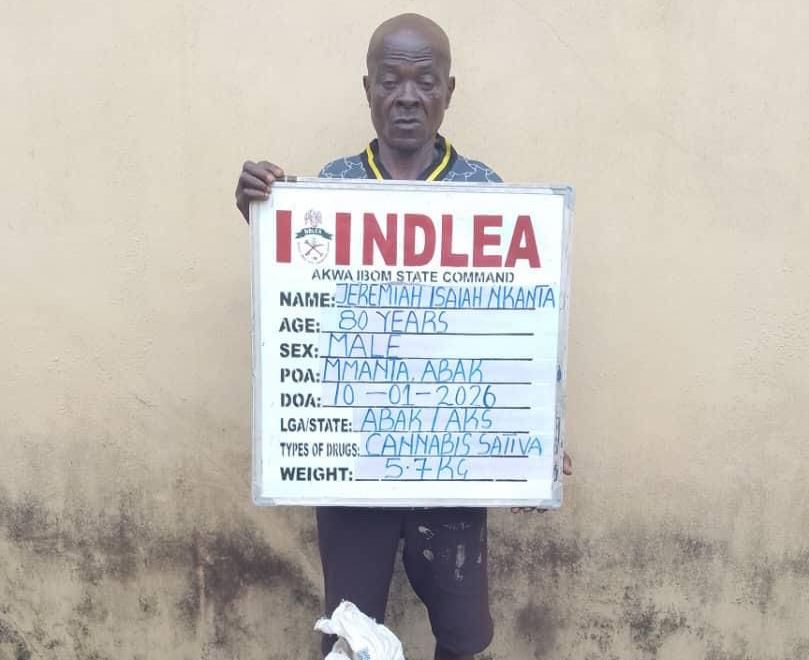 NDLEA
AKWA IBOM STATE COMMAND
NAME: JEREMIAH ISAIAH NKANTA
AGE: 80 YEARS
SEX: MALE
POA: MMANTA, ABAK
DOA: 10-01-2026
LGA/STATE: ABAK / AKS
TYPES OF DRUGS: CANNABIS SATIVA
WEIGHT: 5.7KG